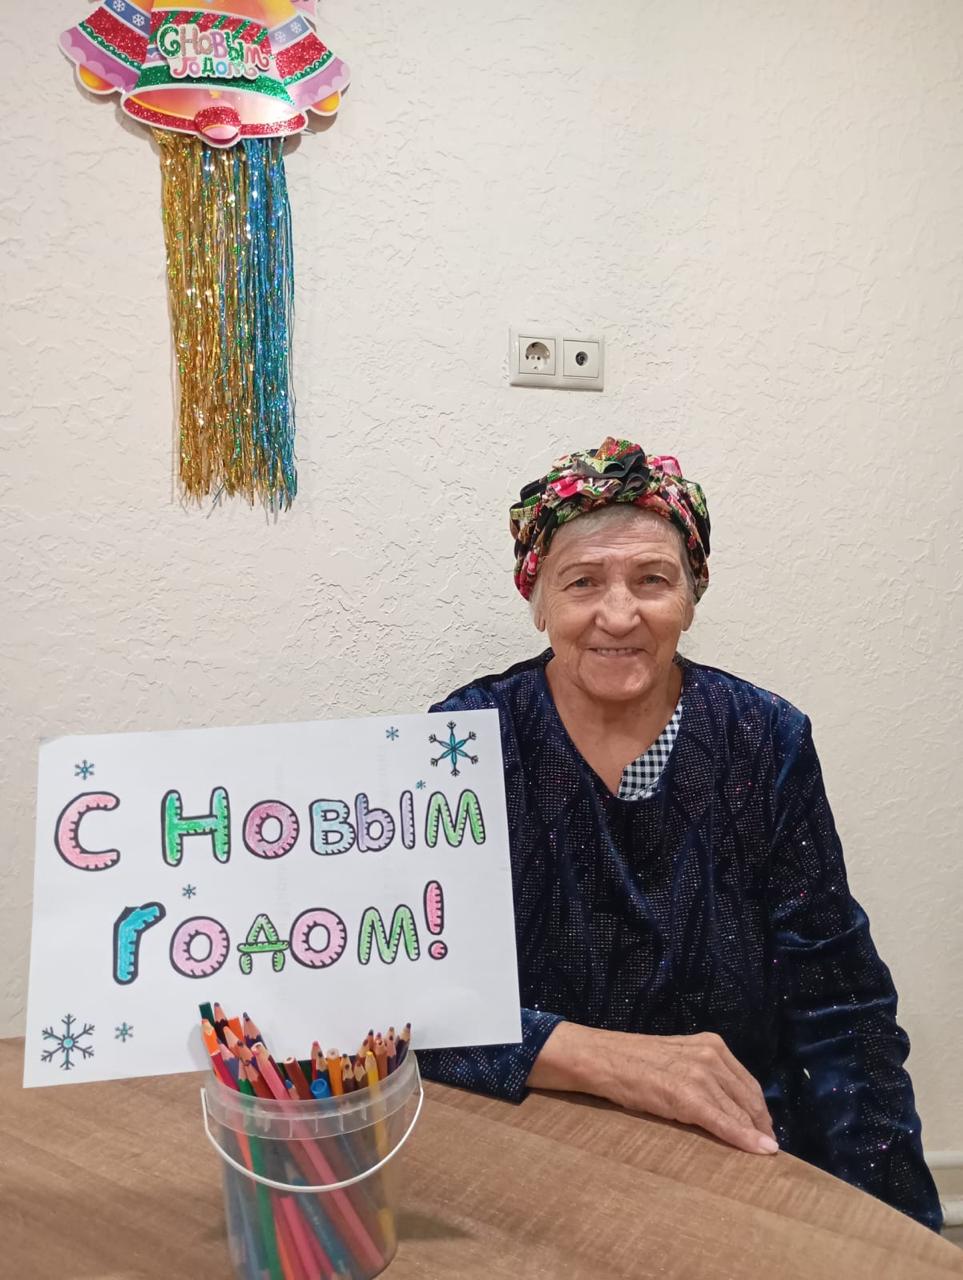 С Новым
Годом
С Новым
Годом!